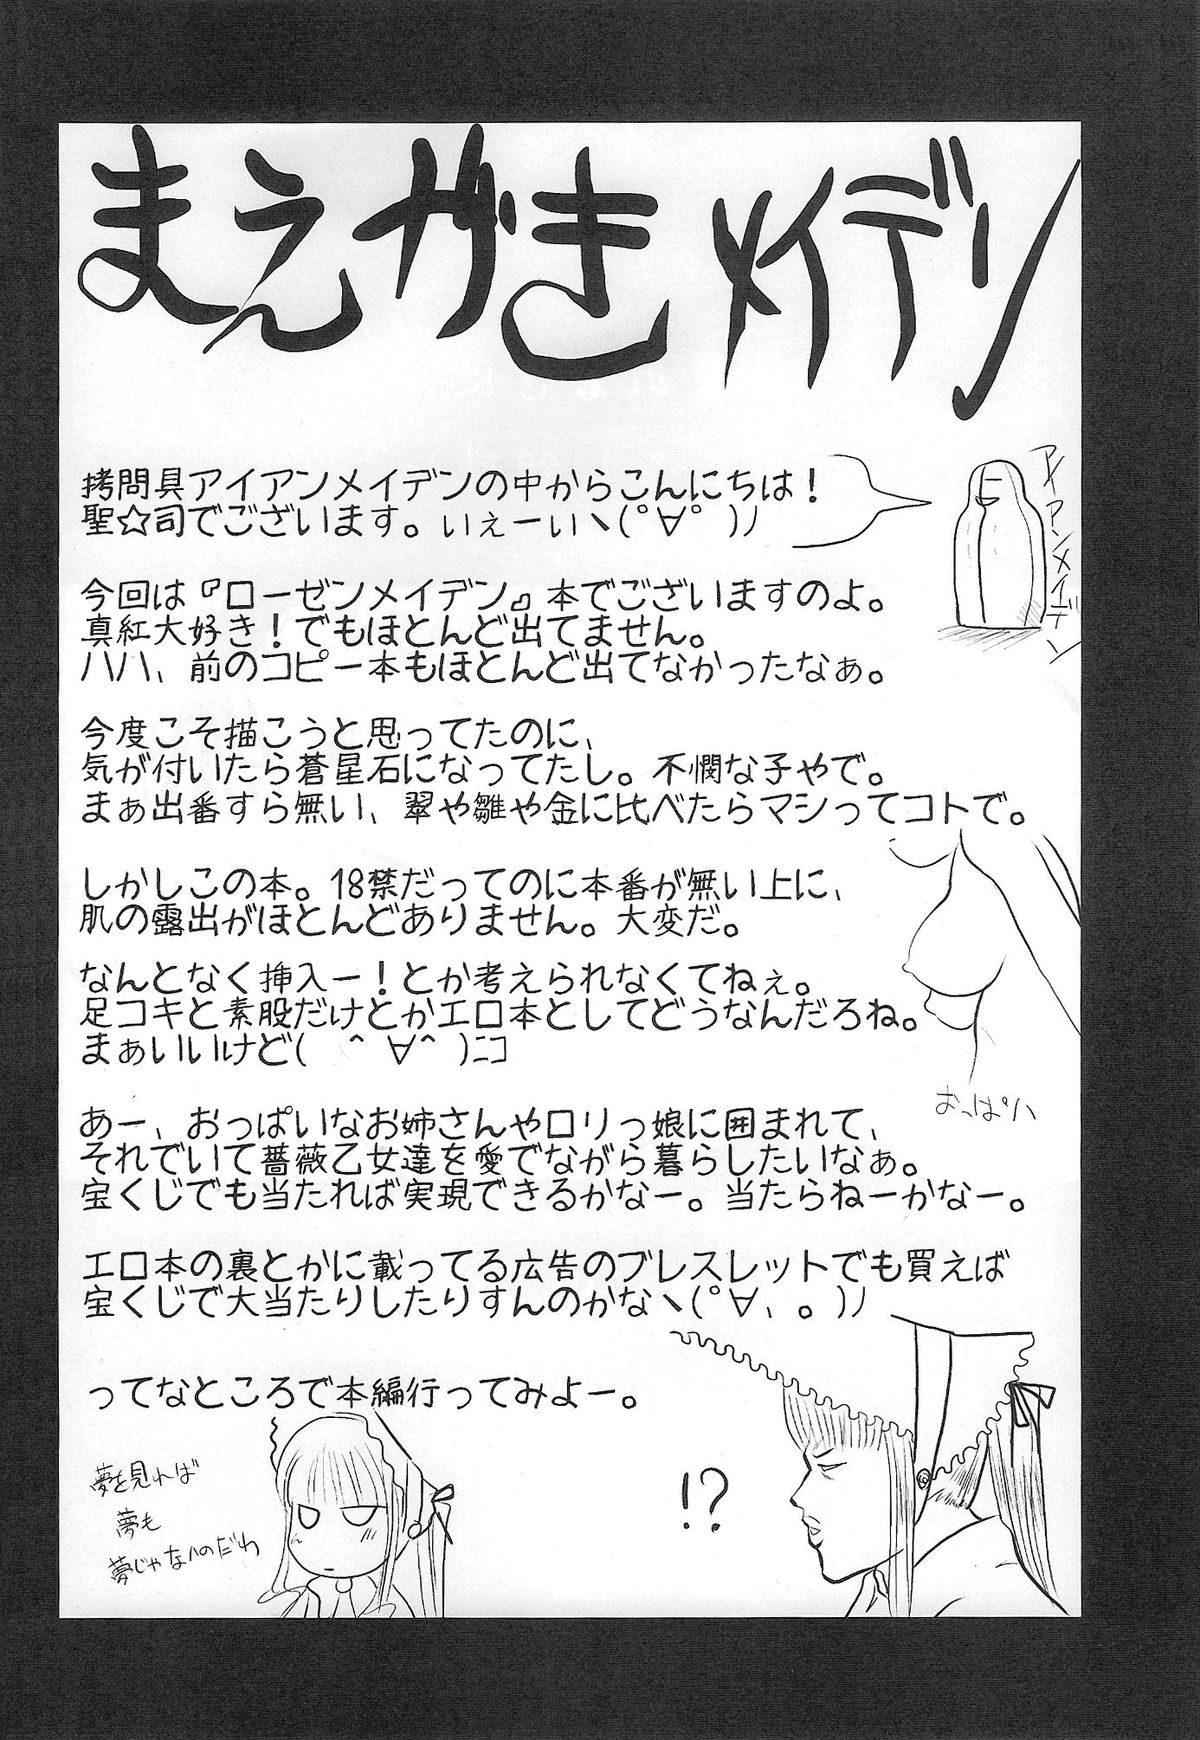 まえがきメイデン
拷問具アイアンメイデンの中からこんにちは！
聖☆司でございます。いぇーいヽ(ﾟ∀ﾟ)ﾉ
アイアンメイデン
今回は『ローゼンメイデン』本でございますのよ。
真紅大好き！でもほとんど出てません。
ハハ、前のコピー本もほとんど出てなかったなぁ。
今度こそ描こうと思ってたのに、
気が付いたら蒼星石になってたし。不憫な子やで。
まぁ出番すら無い、翠や雛や金に比べたらマシってコトで。
しかしこの本。18禁だってのに本番が無い上に、
肌の露出がほとんどありません。大変だ。
なんとなく挿入ー！とか考えられなくてねぇ。
足コキと素股だけとかエロ本としてどうなんだろね。
まぁいいけど( ＾∀＾)ﾆｺ
おっぱい
あー、おっぱいなお姉さんやロリっ娘に囲まれて、
それでいて薔薇乙女達を愛でながら暮らしたいなぁ。
宝くじでも当たれば実現できるかなー。当たらねーかなー。
エロ本の裏とかに載ってる広告のブレスレットでも買えば
宝くじで大当たりしたりすんのかなヽ(ﾟ∀、。)ﾉ
ってなところで本編行ってみよー。
夢を見れば
夢も
夢じゃないのだわ
!?